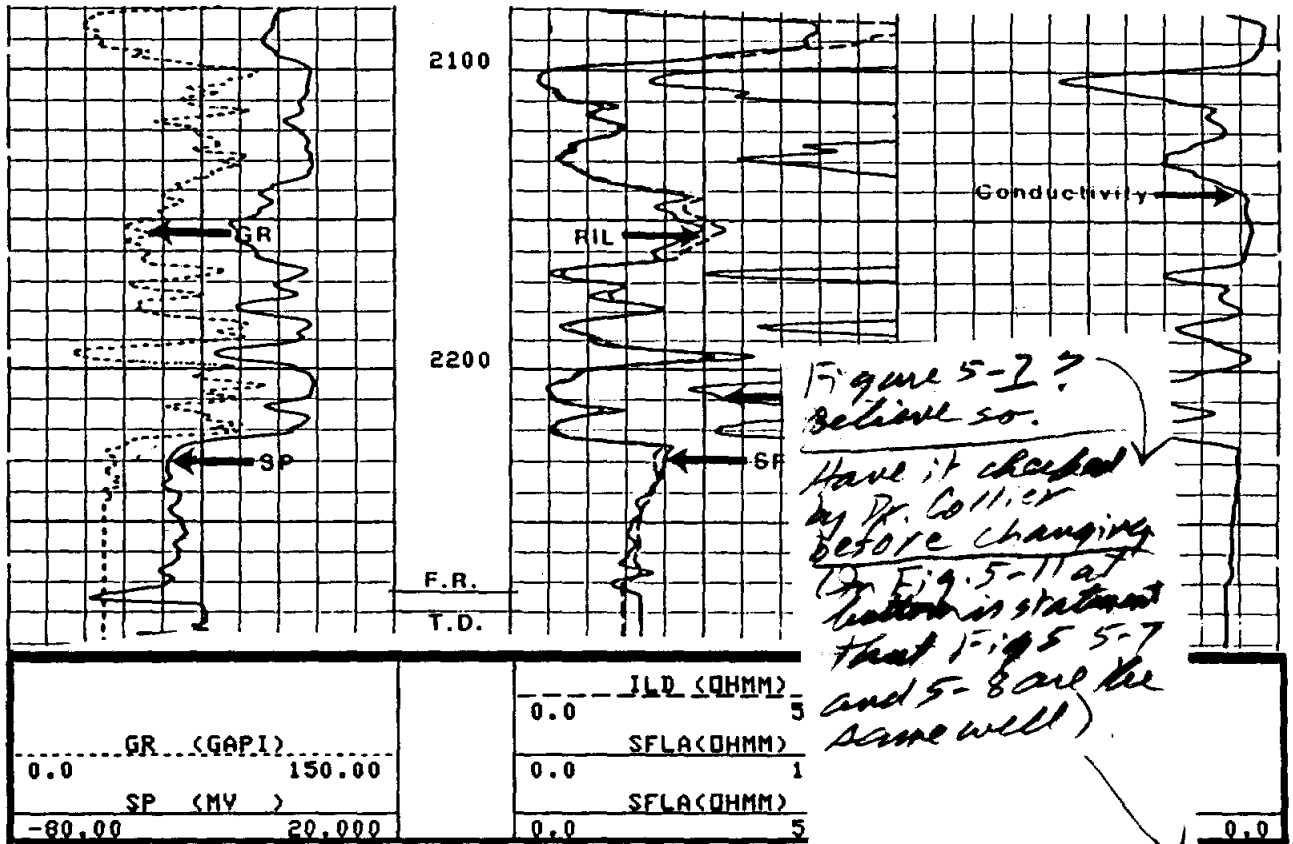 2100
Conductivity
GR
RIL
2200
SP
SF
F.R.
T.D.
Figure 5-7?
Believe so.
Have it checked
by Dr. Collier
before changing
(On Fig. 5-11 at
bottom is statement
that Figs 5-7
and 5-8 are the
same well)
ILD (OHMM)
0.0 5
GR (GAPI)
0.0 150.00
SFLA(OHMM)
0.0 1
SP (MV )
-80.00 20.000
SFLA(OHMM)
0.0 5
0.0